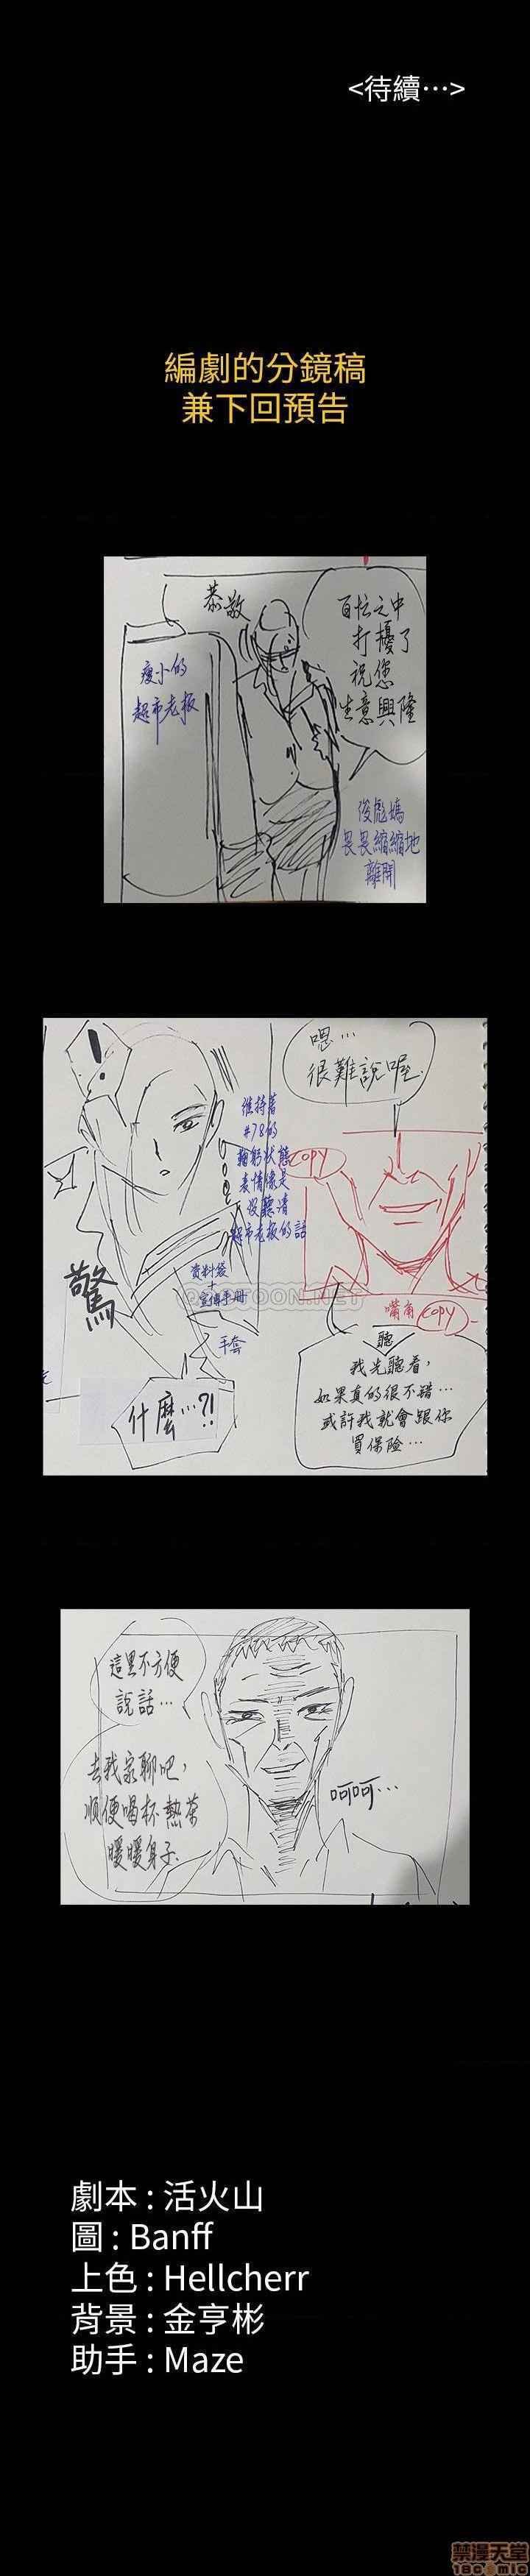 <待續…>
編劇的分鏡稿
兼下回預告
恭敬
百忙之中
打擾了
祝您
生意興隆
瘦小的
超市老板
俊彪媽
畏畏縮縮地
離開
嗯…
很難說喔.
維持著
#78的
鞠躬狀態
表情像是
沒聽清
超市老板的話
COPY
資料袋
+
宣傳手冊
手套
驚
什麼…?!
嘴角 COPY
聽
我先聽看,
如果真的很不錯…
或許我就會跟你
買保險…
TOPTOON.NET
這里不方便
說話…
去我家聊吧,
順便喝杯熱茶
暖暖身子.
呵呵…
劇本 : 活火山
圖 : Banff
上色 : Hellcherr
背景 : 金亨彬
助手 : Maze
禁漫天堂
18comic